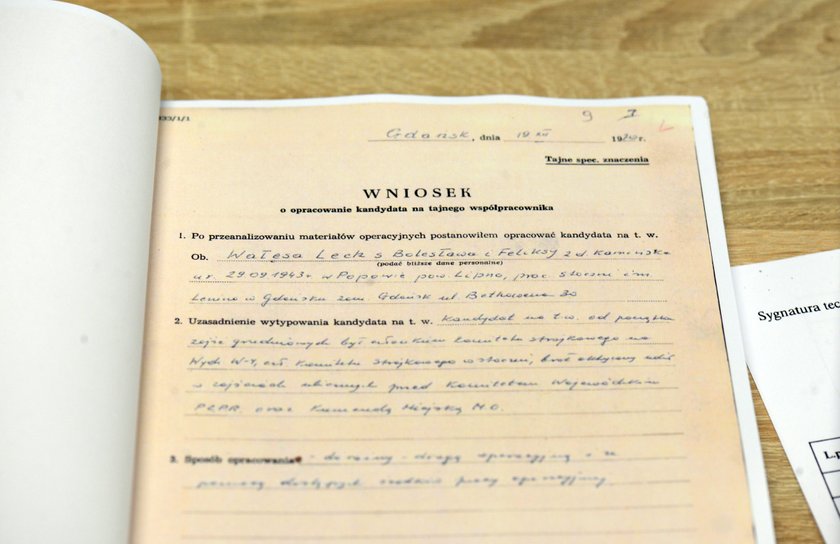 133/1/1
9 1
Gdańsk, dnia 19 XII 1970 r.
Tajne spec. znaczenia
WNIOSEK
o opracowanie kandydata na tajnego współpracownika
1. Po przeanalizowaniu materiałów operacyjnych postanowiłem opracować kandydata na t. w.
Ob. Wałęsa Lech s Bolesława i Feliksy z d. Kamińska
(podać bliższe dane personalne)
ur. 29.09.1943r w Popowie pow. Lipno, prac. Stoczni im.
Lenina w Gdańsku zam. Gdańsk ul. Bethovena 30
2. Uzasadnienie wytypowania kandydata na t. w. Kandydat na t.w. od początku
zajść grudniowych był członkiem komitetu strajkowego na
Wydz W-4, czł. Komitetu Strajkowego w stoczni, brał aktywny udz.
w zajściach ulicznych przed Komitetem Wojewódzkim
PZPR oraz Komendą Miejską M.O.
3. Sposób opracowania - doraźny - drogą operacyjną i za
pomocą dostępnych środków pracy operacyjnej
Sygnatura tec
L.p